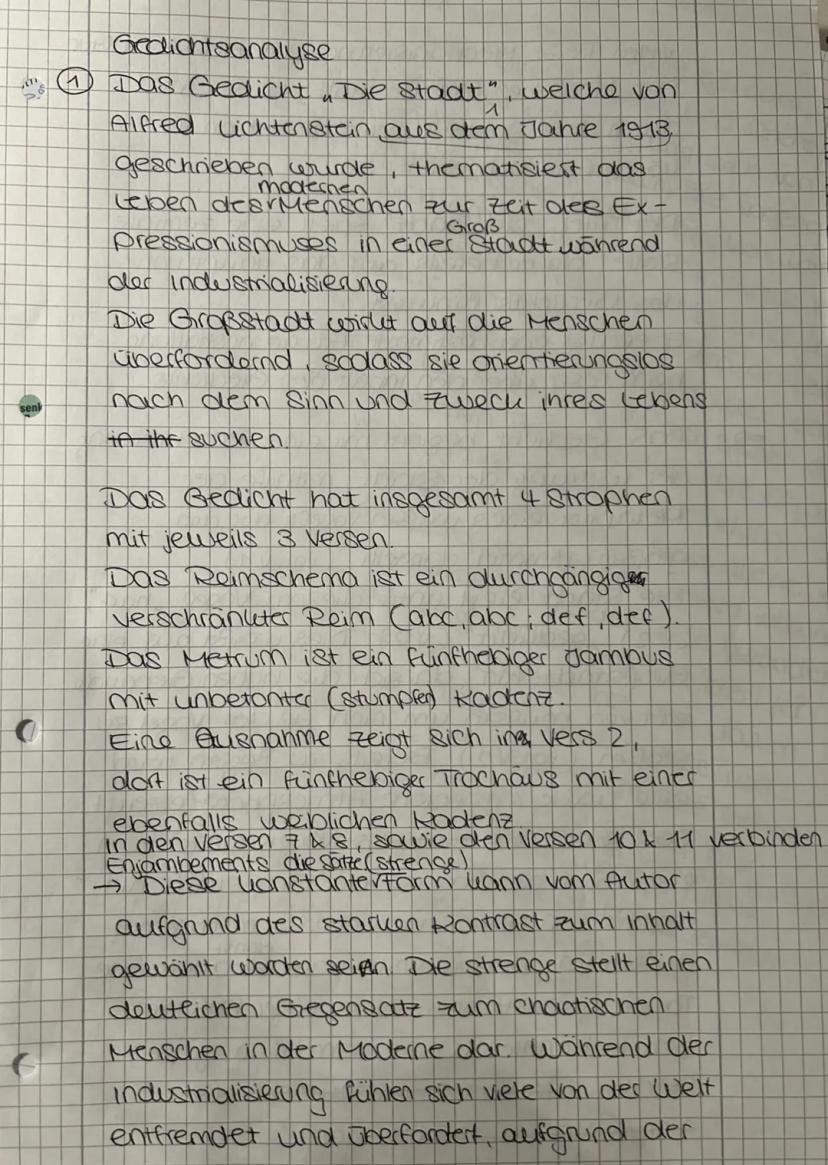 Gedichtsanalyse
① Das Gedicht „Die Stadt", welche von
1
Alfred Lichtenstein aus dem Jahre 1913
geschrieben wurde, thematisiert das
modernen
Leben des Menschen zur Zeit des Ex-
Groß
pressionismuses in einer Stadt während
der Industrialisierung.
Die Großstadt wirkt auf die Menschen
überfordernd, sodass sie orientierungslos
senk
nach dem Sinn und Zweck ihres Lebens
in ihr suchen.
Das Gedicht hat insgesamt 4 Strophen
mit jeweils 3 Versen.
Das Reimschema ist ein durchgängiger
verschränkter Reim (abc, abc; def, def).
Das Metrum ist ein fünfhebiger Jambus
mit unbetonter (stumpfer) Kadenz.
Eine Ausnahme zeigt sich in Vers 2,
dort ist ein fünfhebiger Trochäus mit einer
ebenfalls weiblichen Kadenz.
In den Versen 7 & 8, sowie den Versen 10 & 11 verbinden
Enjambements die Sätze (strenge)
→ Diese konstante Form kann vom Autor
aufgrund des starken Kontrast zum Inhalt
gewählt worden sein. Die strenge stellt einen
deutlichen Gegensatz zum chaotischen
Menschen in der Moderne dar. Während der
Industrialisierung fühlen sich viele von der Welt
entfremdet und überfordert, aufgrund der